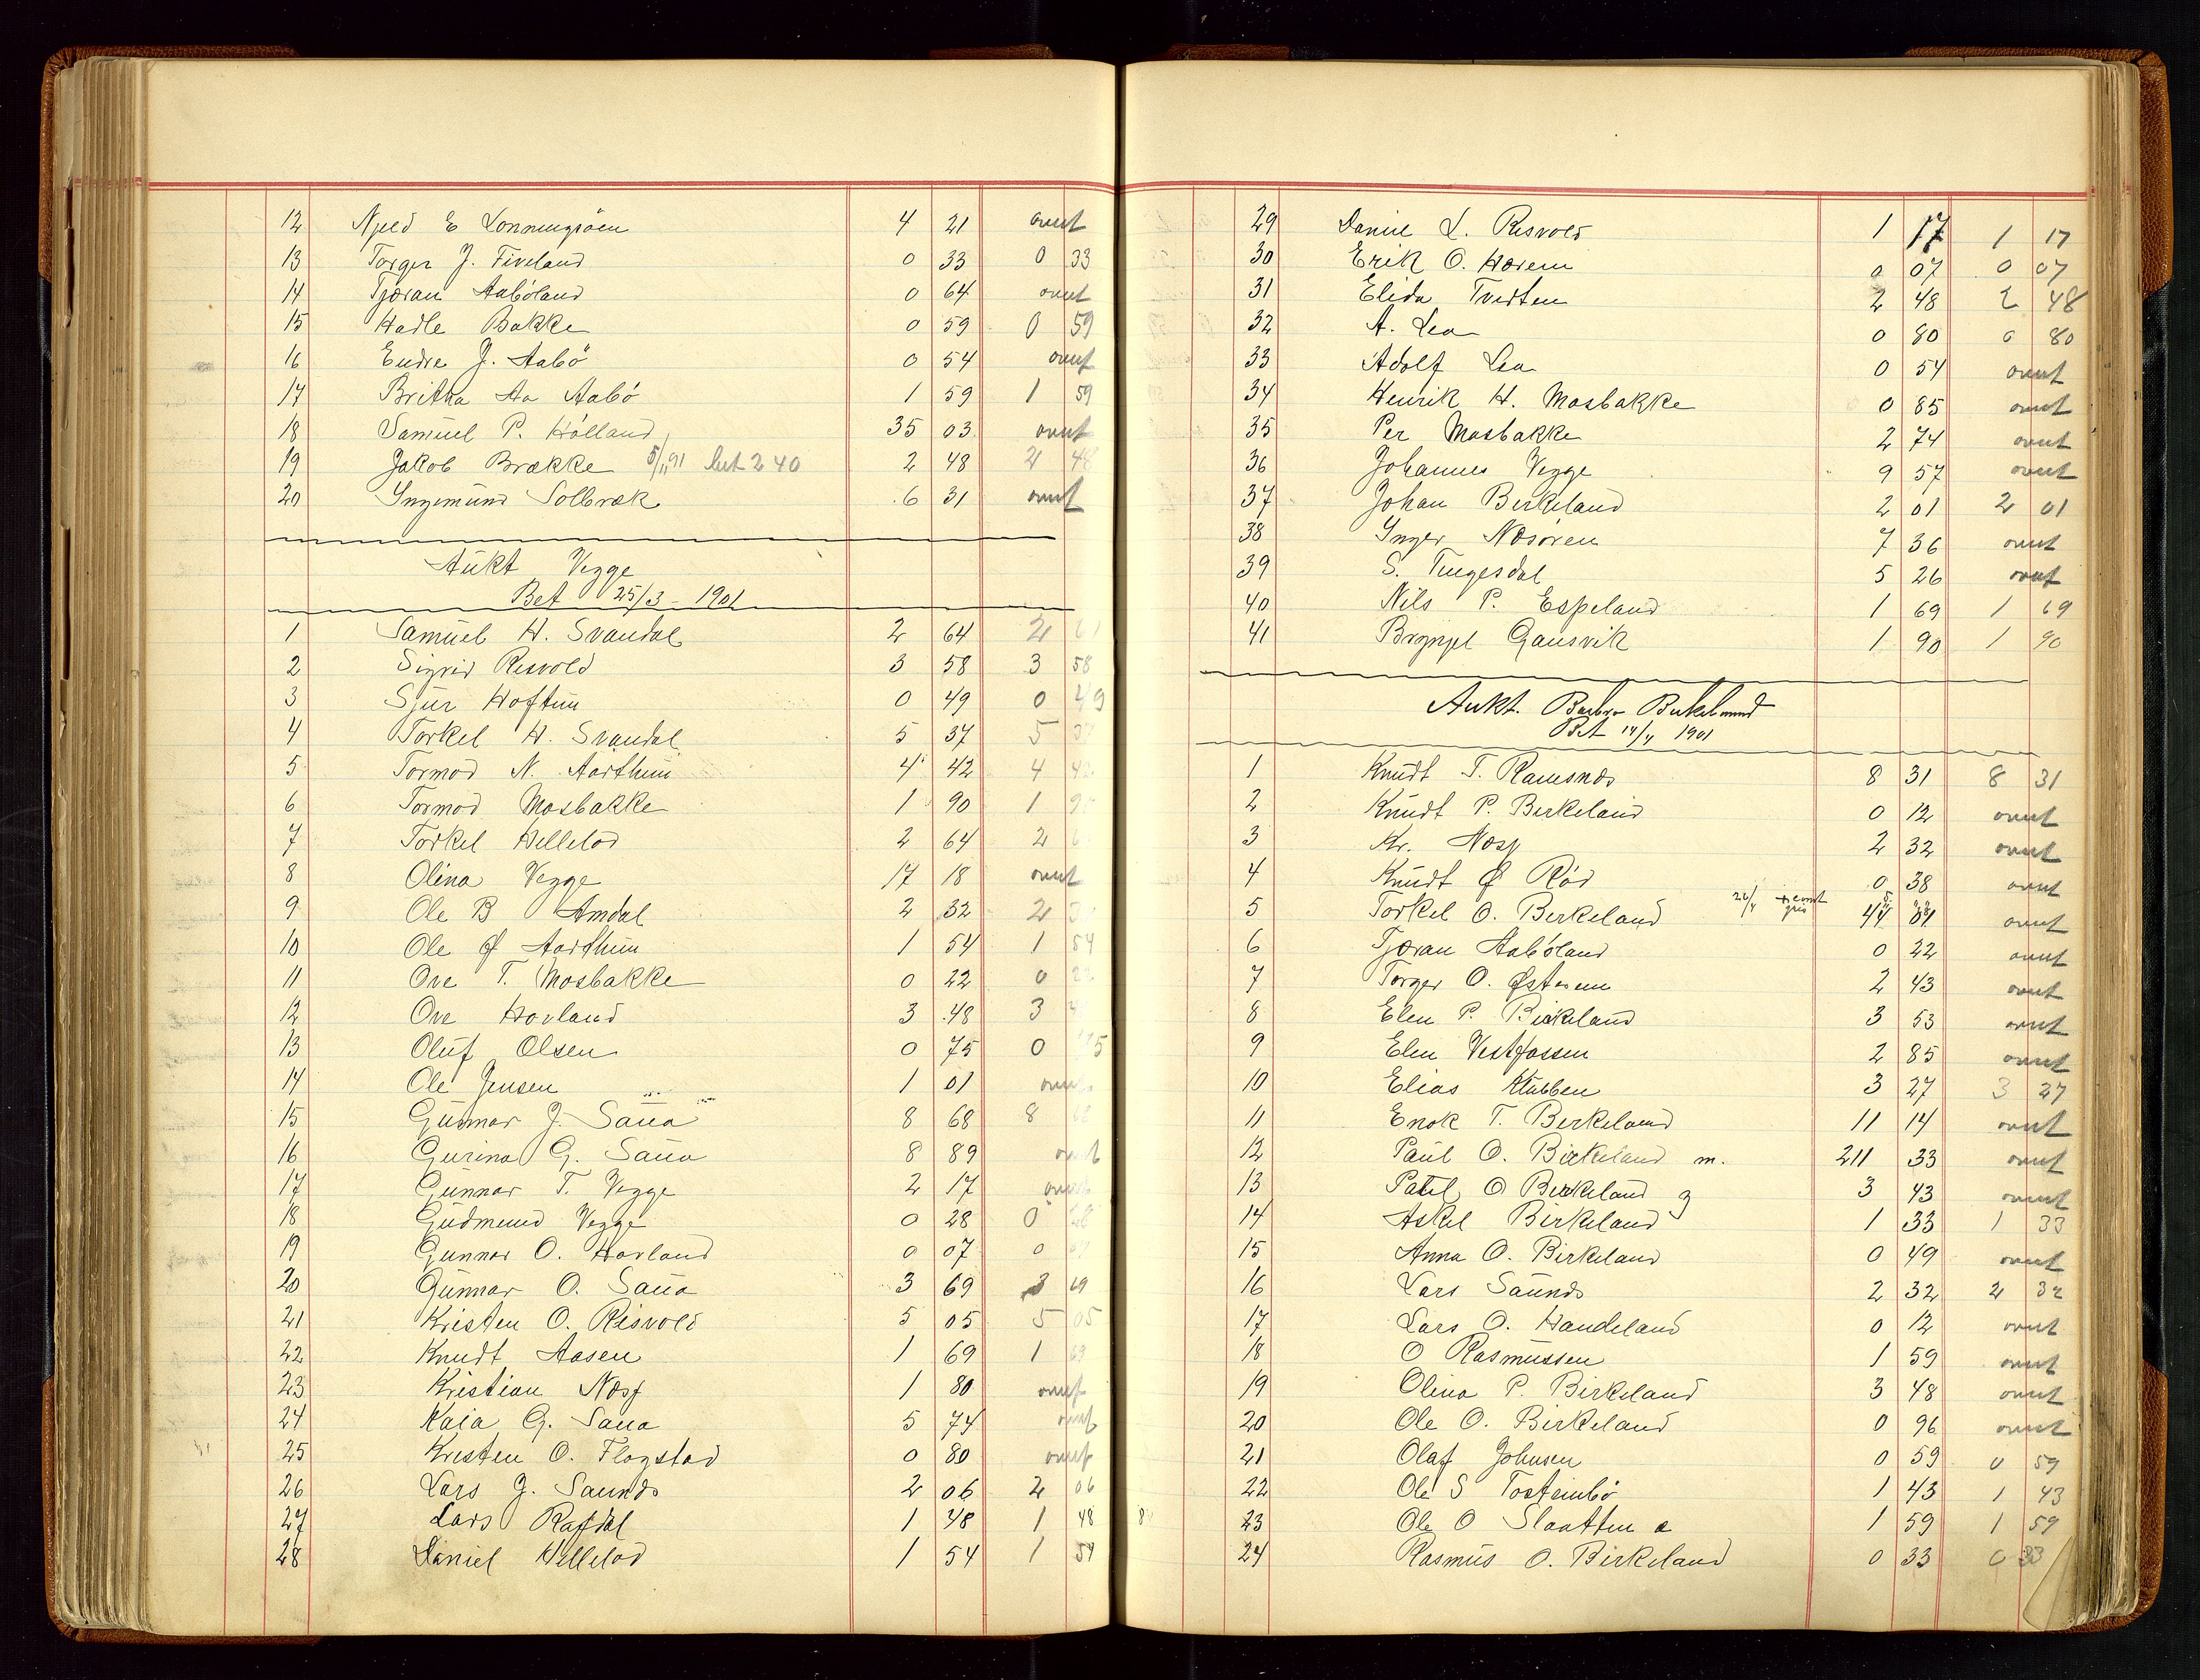 12 Njeld E Lonningsöen 4 21 ovnt
13 Torger J. Fiveland 0 33 0 33
14 Tjæran Aaböland 0 64 ovnt
15 Hadle Bakke 0 59 0 59
16 Endre J. Aabö 0 54 ovnt
17 Britha Aa Aabö 1 59 1 59
18 Samuel P. Hölland 35 03 ovnt
19 Jakob Brække 5/11 91 bet 2 40 2 48 2 48
20 Yngemund Solbræk 6 31 ovnt
Aukt Vegge
Bet 25/3 - 1901
1 Samuel H. Svandal 2 64 2
2 Sigrid Risvold 3 58 3 58
3 Sjur Hoftun 0 49 0 49
4 Torkel H. Svandal 5 37 5 37
5 Tormod N. Aarthun 4 42 4 42
6 Tormod Mosbakke 1 90 1 9
7 Torkel Hellelod 2 64 2 6
8 Olina Vegge 17 18 ovnt
9 Ole B Amdal 2 32 2 3
10 Ole Ø Aarthun 1 54 1 54
11 Ove T. Mosbakke 0 22 0 22
12 Ove Hovland 3 48 3
13 Oluf Olsen 0 75 0 75
14 Ole Jensen 1 01 ovnt
15 Gunnar J. Saua 8 68 8 68
16 Gurina G. Saua 8 89 ovnt
17 Gunnar T. Vegge 2 17 ovnt
18 Gudmund Vegge 0 28 0 28
19 Gunnar O. Hovland 0 07 0 07
20 Gunnar O. Saua 3 69 3 69
21 Kristen O. Risvold 5 05 5 05
22 Knudt Aasen 1 69 1 69
23 Kristian Næsf 1 80 ovnt
24 Kaia G. Saua 5 74 ovnt
25 Kristen O. Flogstad 0 80 ovnt
26 Lars J. Saunds 2 06 2 06
27 Lars Rafdal 1 48 1 48
28 Daniel Hellelod 1 54 1 54
29 Daniel L. Risvold 1 17 1 17
30 Erik O. Hærem 0 07 0 07
31 Elida Tvedten 2 48 2 48
32 A. Lea 0 80 0 80
33 Adolf Lea 0 54 ovnt
34 Henrik H. Mosbakke 0 85 ovnt
35 Per Mosbakke 2 74 ovnt
36 Johannes Vegge 9 57 ovnt
37 Johan Birkeland 2 01 2 01
38 Inger Næsören 7 36 ovnt
39 S. Tengesdal 5 26 ovnt
40 Nils P. Espeland 1 69 1 69
41 Brynjel Gausvik 1 90 1 90
Aukt. Barbro Birkeland
Bet 14/4 1901
1 Knudt T. Ramsnæs 8 31 8 31
2 Knudt P. Birkeland 0 12 ovnt
3 Kr. Næsf 2 32 ovnt
4 Knudt Ø Röd 0 38 ovnt
5 Torkel O. Birkeland 44 ovnt
6 Tjæran Aabøland 0 22 ovnt
7 Torger O. Østrem 2 43 ovnt
8 Elen P. Birkeland 3 53 ovnt
9 Elen Vestfossen 2 85 ovnt
10 Elias Stubben 3 27 3 27
11 Enok T. Birkeland 11 14 ovnt
12 Paul O. Birkeland m. 211 33 ovnt
13 Paul O Birkeland g 3 43 ovnt
14 Askel Birkeland 1 33 1 33
15 Anna O. Birkeland 0 49 ovnt
16 Lars Saunds 2 32 2 32
17 Lars O. Handeland 0 12 ovnt
18 O Rasmussen 1 59 ovnt
19 Olina P. Birkeland 3 48 ovnt
20 Ole O. Birkeland 0 96 ovnt
21 Olaf Johnsen 0 59 0 59
22 Ole S Tosteinbö 1 43 1 43
23 Ole O Slaatten 1 59 1 59
24 Rasmus O. Birkeland 0 33 0 33